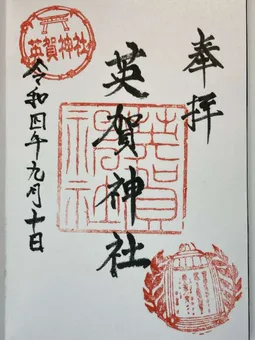 奉拝
英賀神社
令和四年九月十日
英賀神社
英賀神社